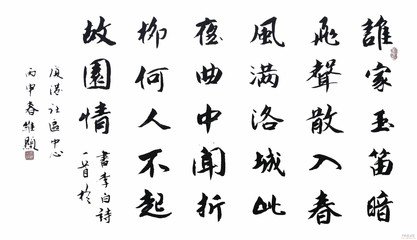 誰家玉笛暗
飛聲散入春
風滿洛城此
夜曲中聞折
柳何人不起
故園情
書李白詩
一首於
社區中心
丙申春維